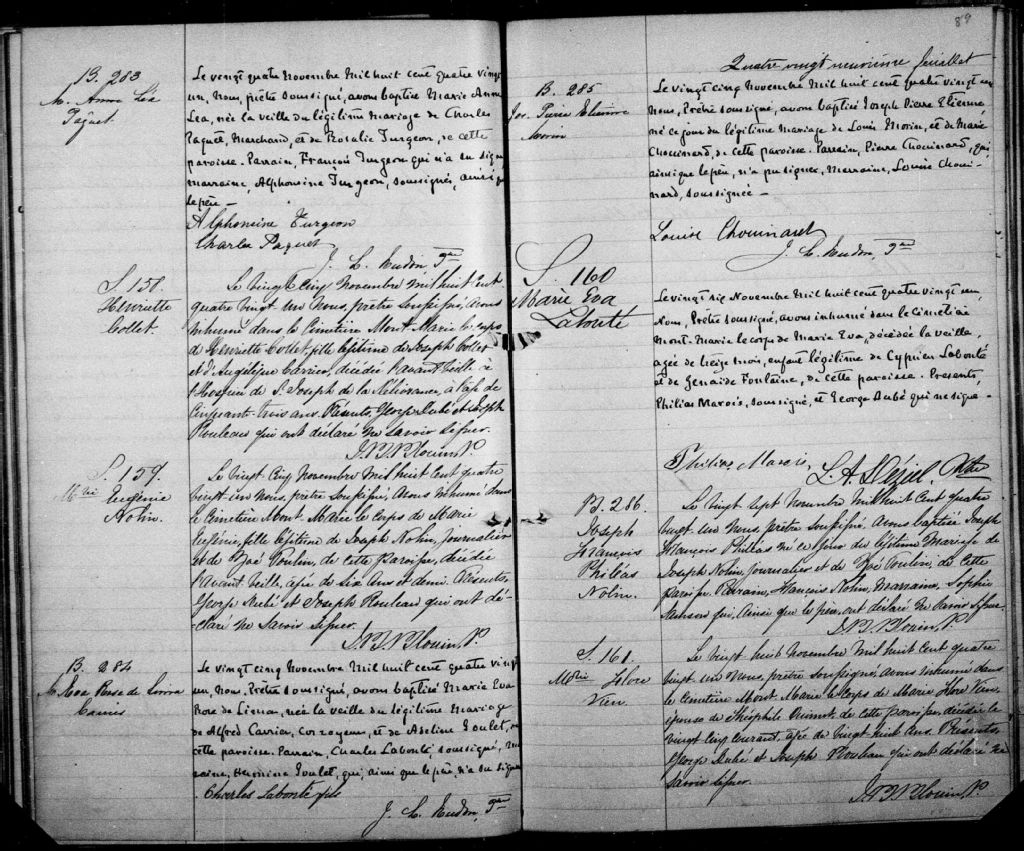 B. 283
M. Anna Léa
Paquet.
Le vingt quatre Novembre Mil huit cent quatre vingt
un, Nous, prêtre soussigné, avons baptisé Marie Anna
Lea, née la veille du légitime mariage de Charles
Paquet, Marchand, et de Rosalie Turgeon, de cette
paroisse. Parrain, François Turgeon qui n'a su signer
marraine, Alphonsine Turgeon, soussignés, ainsi que
le père —
Alphonsine Turgeon
Charles Paquet
S. 158.
Henriette
Collet.
Le Vingt Cinq Novembre Mil huit Cent
quatre Vingt Un Nous, prêtre Soussigné, avons
inhumé dans le Cimetière Mont-Marie le corps
d'Henriette Collet, fille légitime de Joseph Collet
et d'Angélique Carrier, décédée l'avant Veille à
l'Hospice de St Joseph de la Délivrance, à l'age de
Cinquante trois ans. Présents, George Dubé et Joseph
Rouleau qui ont déclaré ne savoir Signer.
J.B.N. Blouin, P.
S. 159.
Mrie Eugénie
Nolin.
Le Vingt Cinq Novembre Mil huit Cent quatre
Vingt-un Nous, prêtre Soussigné, Avons inhumé dans
le Cimetière Mont-Marie le Corps de Marie
Eugénie, fille légitime de Joseph Nolin, journalier
et de Zoé Poulin, de cette Paroisse, décédée
l'avant Veille, agée de Six Ans et demi. Présents,
George Dubé et Joseph Rouleau qui ont dé-
claré ne Savoir Signer.
J.B.N. Blouin, P.
B. 284
M. Eva Rose de Lima
Carrier
Le vingt cinq Novembre Mil huit cent quatre vingt
un, Nous, Prêtre soussigné, avons baptisé Marie Eva
Rose de Lima, née la veille du légitime mariage
de Alfred Carrier, corroyeur, et de Aseline Goulet, de
cette paroisse. Parrain, Charles Labonté, soussigné, Mar
raine, Hermine Goulet, qui, ainsi que le père n'a su signer
Charles Labonté fils
89
Quatre vingt neuvième feuillet
B. 285
Jos. Pierre Etienne
Morin
Le vingt cinq Novembre Mil huit cent quatre vingt un
Nous, Prêtre soussigné, avons baptisé Joseph Pierre Etienne,
né ce jour du légitime mariage de Louis Morin, et de Marie
Chouinard, de cette paroisse. Parrain, Pierre Chouinard, qui
ainsi que le père, n'a pu signer, Marraine, Louise Choui-
nard, soussignée —
Louise Chouinard
S. 160
Marie Eva
Labonté
Le vingt six Novembre Mil huit cent quatre vingt un
Nous, Prêtre soussigné, avons inhumé dans le Cimetière
Mont-Marie le corps de Marie Eva, décédée la veille,
agée de treize mois, enfant légitime de Cyprien Labonté
et de Zenaide Fontaine, de cette paroisse. Presents,
Philias Marois, soussigné, et George Dubé qui ne signe —
Philias Marois
B. 286.
Joseph
François
Philéas
Nolin.
Le Vingt Sept Novembre Mil huit Cent quatre
Vingt-Un Nous, prêtre soussigné, Avons baptisé Joseph
François Philéas né ce jour du légitime Mariage de
Joseph Nolin, journalier et de Zoé Poulin, de Cette
paroisse. Parrain, François Nolin, Marraine, Sophie
qui, Ainsi que le père, ont déclaré ne Savoir Signer.
J.B.N. Blouin, P.
S. 161.
Mrie Flore
Vien.
Le Vingt huit Novembre Mil huit Cent quatre
Vingt-Un Nous, prêtre soussigné, avons inhumé dans
le Cimetière Mont Marie le Corps de Marie Flore Vien,
épouse de Théophile Ouimet, de cette paroisse, décédée le
Vingt Cinq Courant, agée de Vingt-huit Ans. Présents,
George Dubé et Joseph Rouleau qui ont déclaré ne
Savoir Signer.
J.B.N. Blouin, P.